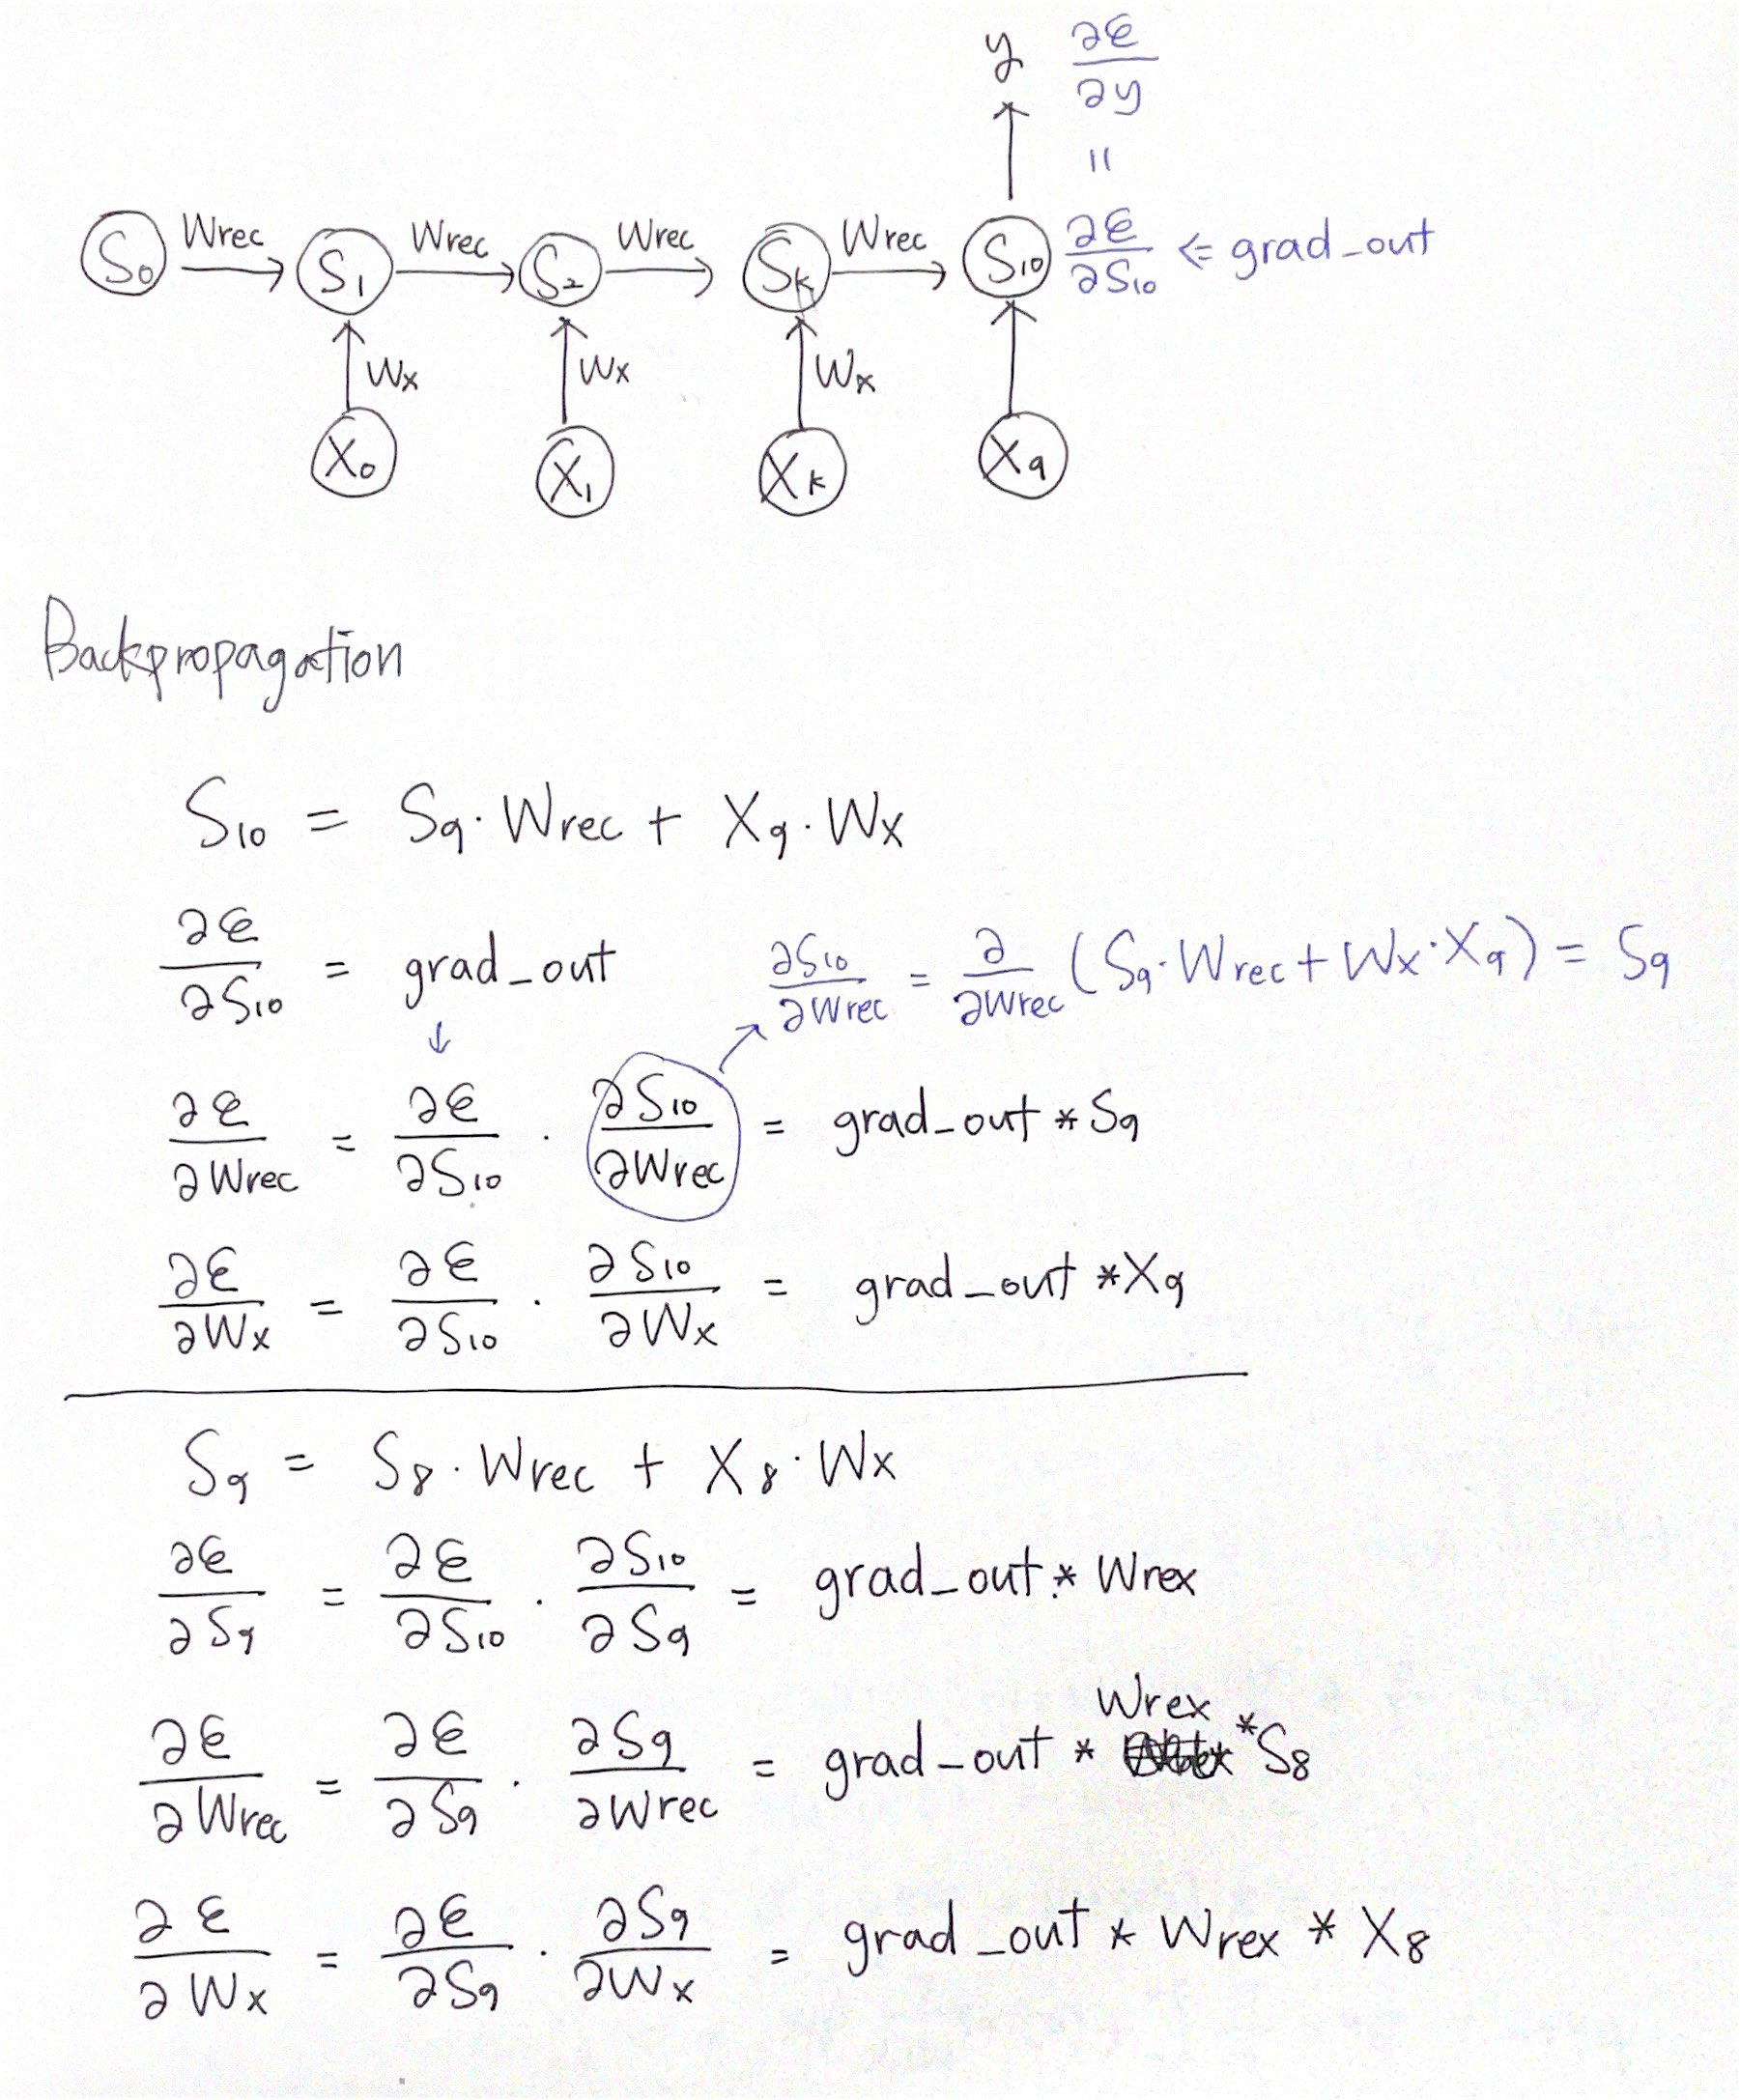 y ∂ε/∂y
=
S₀ Wrec S₁ Wrec S₂ Wrec Sₖ Wrec S₁₀ ∂ε/∂S₁₀ ⇐ grad_out
Wx Wx Wx
X₀ X₁ Xₖ X₉
Backpropagation
S₁₀ = S₉ · Wrec + X₉ · Wx
∂ε/∂S₁₀ = grad_out
∂S₁₀/∂Wrec = ∂/∂Wrec (S₉ · Wrec + Wx · X₉) = S₉
∂ε/∂Wrec = ∂ε/∂S₁₀ · ∂S₁₀/∂Wrec = grad_out * S₉
∂ε/∂Wx = ∂ε/∂S₁₀ · ∂S₁₀/∂Wx = grad_out * X₉
S₉ = S₈ · Wrec + X₈ · Wx
∂ε/∂S₉ = ∂ε/∂S₁₀ · ∂S₁₀/∂S₉ = grad_out * Wrex
∂ε/∂Wrec = ∂ε/∂S₉ · ∂S₉/∂Wrec = grad_out * Wrex * S₈
∂ε/∂Wx = ∂ε/∂S₉ · ∂S₉/∂Wx = grad_out * Wrex * X₈